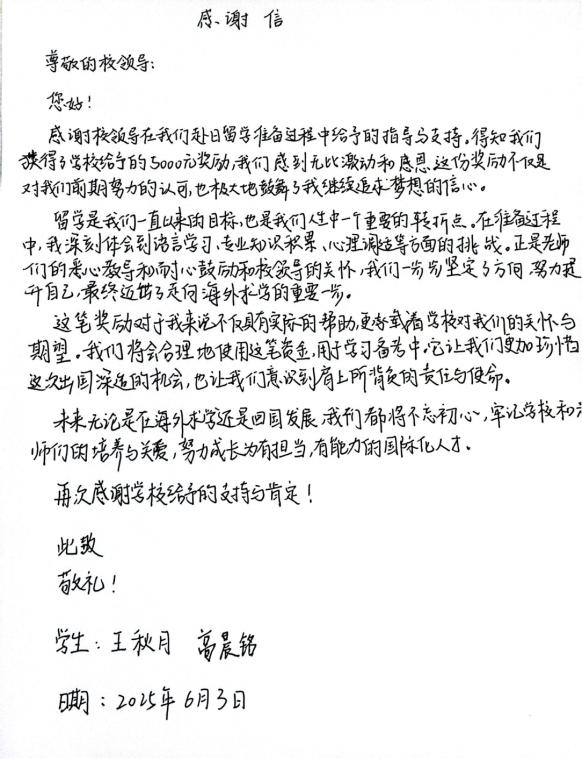 感谢信
尊敬的校领导：
您好！
感谢校领导在我们赴日留学准备过程中给予的指导与支持。得知我们
获得了学校给予的5000元奖励，我们感到无比激动和感恩。这份奖励不仅是
对我们前期努力的认可，也极大地鼓舞了我继续追求梦想的信心。
留学是我们一直以来的目标，也是我们人生中一个重要的转折点。在准备过程
中，我深刻体会到语言学习、专业知识积累、心理调适等方面的挑战。正是老师
们的悉心教导和耐心鼓励和校领导的关怀，我们一步步坚定了方向，努力提
升自己，最终迈出了走向海外求学的重要一步。
这笔奖励对于我来说不仅具有实际的帮助，更承载着学校对我们的关怀与
期望。我们将会合理地使用这笔资金，用于学习备考中。它让我们更加珍惜
这次出国深造的机会，也让我们意识到肩上所背负的责任与使命。
未来无论是在海外求学还是回国发展，我们都将不忘初心，牢记学校和
师们的培养与关爱，努力成长为有担当，有能力的国际化人才。
再次感谢学校给予的支持与肯定！
此致
敬礼！
学生：王秋月 高晨铭
日期：2025年6月3日